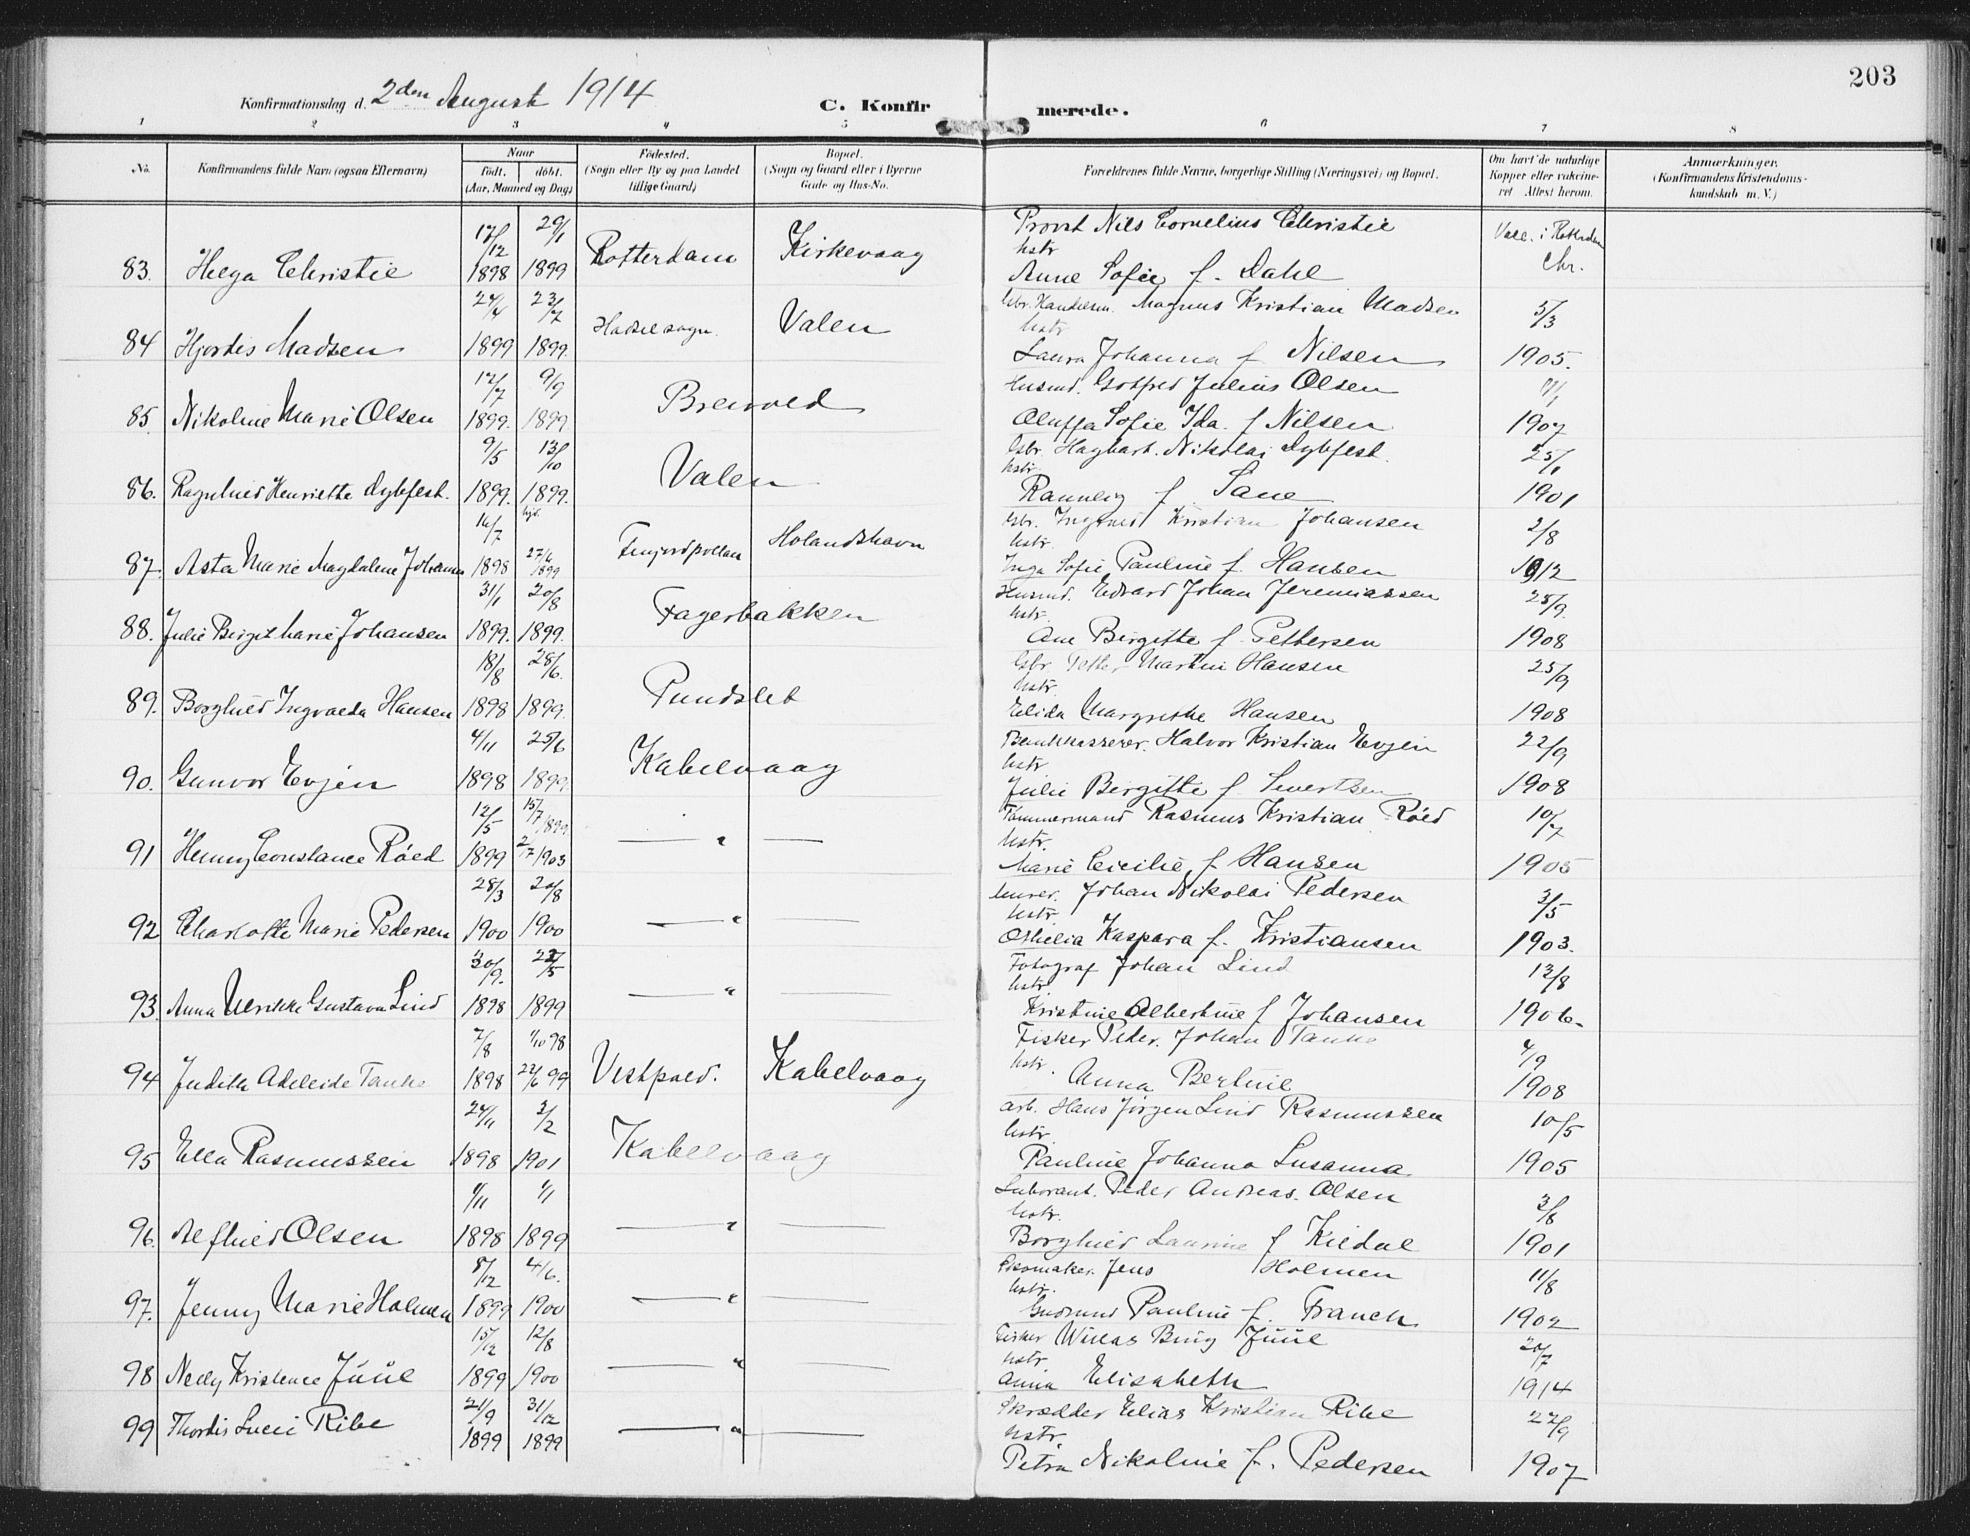 203
Konfirmationsdag d. 2den August 1914
C. Konfirmerede.
1 2 3 4 5 6 7 8
No. Konfirmandens fulde Navn (ogsaa Efternavn) Naar født. døbt. (Aar, Maaned og Dag) Fødested. (Sogn eller By og paa Landet tillige Gaard) Bopæl. (Sogn og Gaard eller i Byerne Gade og Hus-No. Forældrenes fulde Navne, borgerlige Stilling (Næringsvei) og Bopæl. Om havt de naturlige Kopper eller vakcineret Attest herom. Anmærkninger. (Konfirmandens Kristendomskundskab m. V.)
Provst Nils Cornelius Christie
83. Helga Christie 17/12 1898 29/1 1899 Rotterdam Kirkevaag hstr Anne Sofie f. Dahl Chr.
Magnus Kristian Madsen
84 Hjordis Madsen 24/4 1899 23/7 1899. Hadsel sogn. Valen hstr Laura Johanna f Nilsen 5/3 1905.
Husmd. Gotfred Julius Olsen
85. Nikoline Marie Olsen 17/7 1899. 9/9 1899 Breivold Oluffa Sofie Ida. f Nilsen 1907
Gbr. Hagbart. Nikolai Dybfest.
86. Ragnhild Henriette Dybfest. 9/5 1899. 13/10 1899. Valen hstr. Ranneig f. Sane 25/1 1901
hjd.
Gbr. Ingvald Kristian Johansen
87. Asta Marie Magdalene Johansen 16/7 1898 27/6 1899 Finjordpollan Holandshavn hstr. Inga Sofie Pauline f. Hansen 2/8 1912
Husmd. Edvard Johan Jeremiassen
88. Julie Birgit Marie Johansen 31/1 1899. 20/8 1899. Fagerbakken hstr. Ane Birgitte f. Pettersen 25/9. 1908
Gbr Petter Martin Hansen
89. Borghild Ingvalda Hansen 18/8 1898 28/6. 1899. Pundslet hstr. Elida Margrethe Hansen 25/9 1908
Bankkasserer. Halvor Kristian Evjen
90. Gunvor Evjen 4/11 1898 25/6 1899. Kabelvaag hstr Julie Birgitte f. Sivertsen 22/9 1908
Tømmermand Rasmus Kristian Røed
91 Henny Constance Røed 12/5 1899 15/7 1899. 2/7 1903 — " — hstr. Marie Cicilie f. Hansen 10/7 1905
Murer. Johan Nikolai Pedersen
92 Charlotte Marie Pedersen 28/3 1900 20/8 1900 — " — hstr. Othelia Kaspara f. Kristiansen 3/5 1903.
Fotograf Johan Lind
93. Anna Ulrikke Gustava Lind 30/9. 1898 1899 — " — hstr. Kristine Albertine f Johansen 13/8 1906.
Fisker Peder. Johan Tanke
94 Judith Adeleide Tanke 7/8 1898 1/10 98 22/6 99 Vestpold. Kabelvaag hstr. Anna Bertine 4/9 1908
arb. Hans Jørgen Lind Rasmussen
95 Ella Rasmussen 24/11 1898 3/2 1901 Kabelvaag hstr. Pauline Johanna Susanna 10/5 1905
Peder Andreas. Olsen
96. Alfhild Olsen 6/11 1898 1/1 1899 — " — hstr. Borghild Laurine f Kildal 3/8 1901
Skomaker. Jens Holmen
97. Jenny Marie Holmen 8/12 1899 4/6. 1900 — " — hstr. Gudrund Pauline f. Franck 11/8 1902
Fisker Willas Bing Juul
98 Nelly Kristence Juul 15/12 1899 12/8 1900 — " — hstr. Anna Elisabeth 20/7 1914
Skrædder Elias Kristian Ribe
99 Thordis Lucie Ribe 21/9 1899 31/12 1899 — " — hstr. Petra Nikoline f. Pedersen 27/9 1907